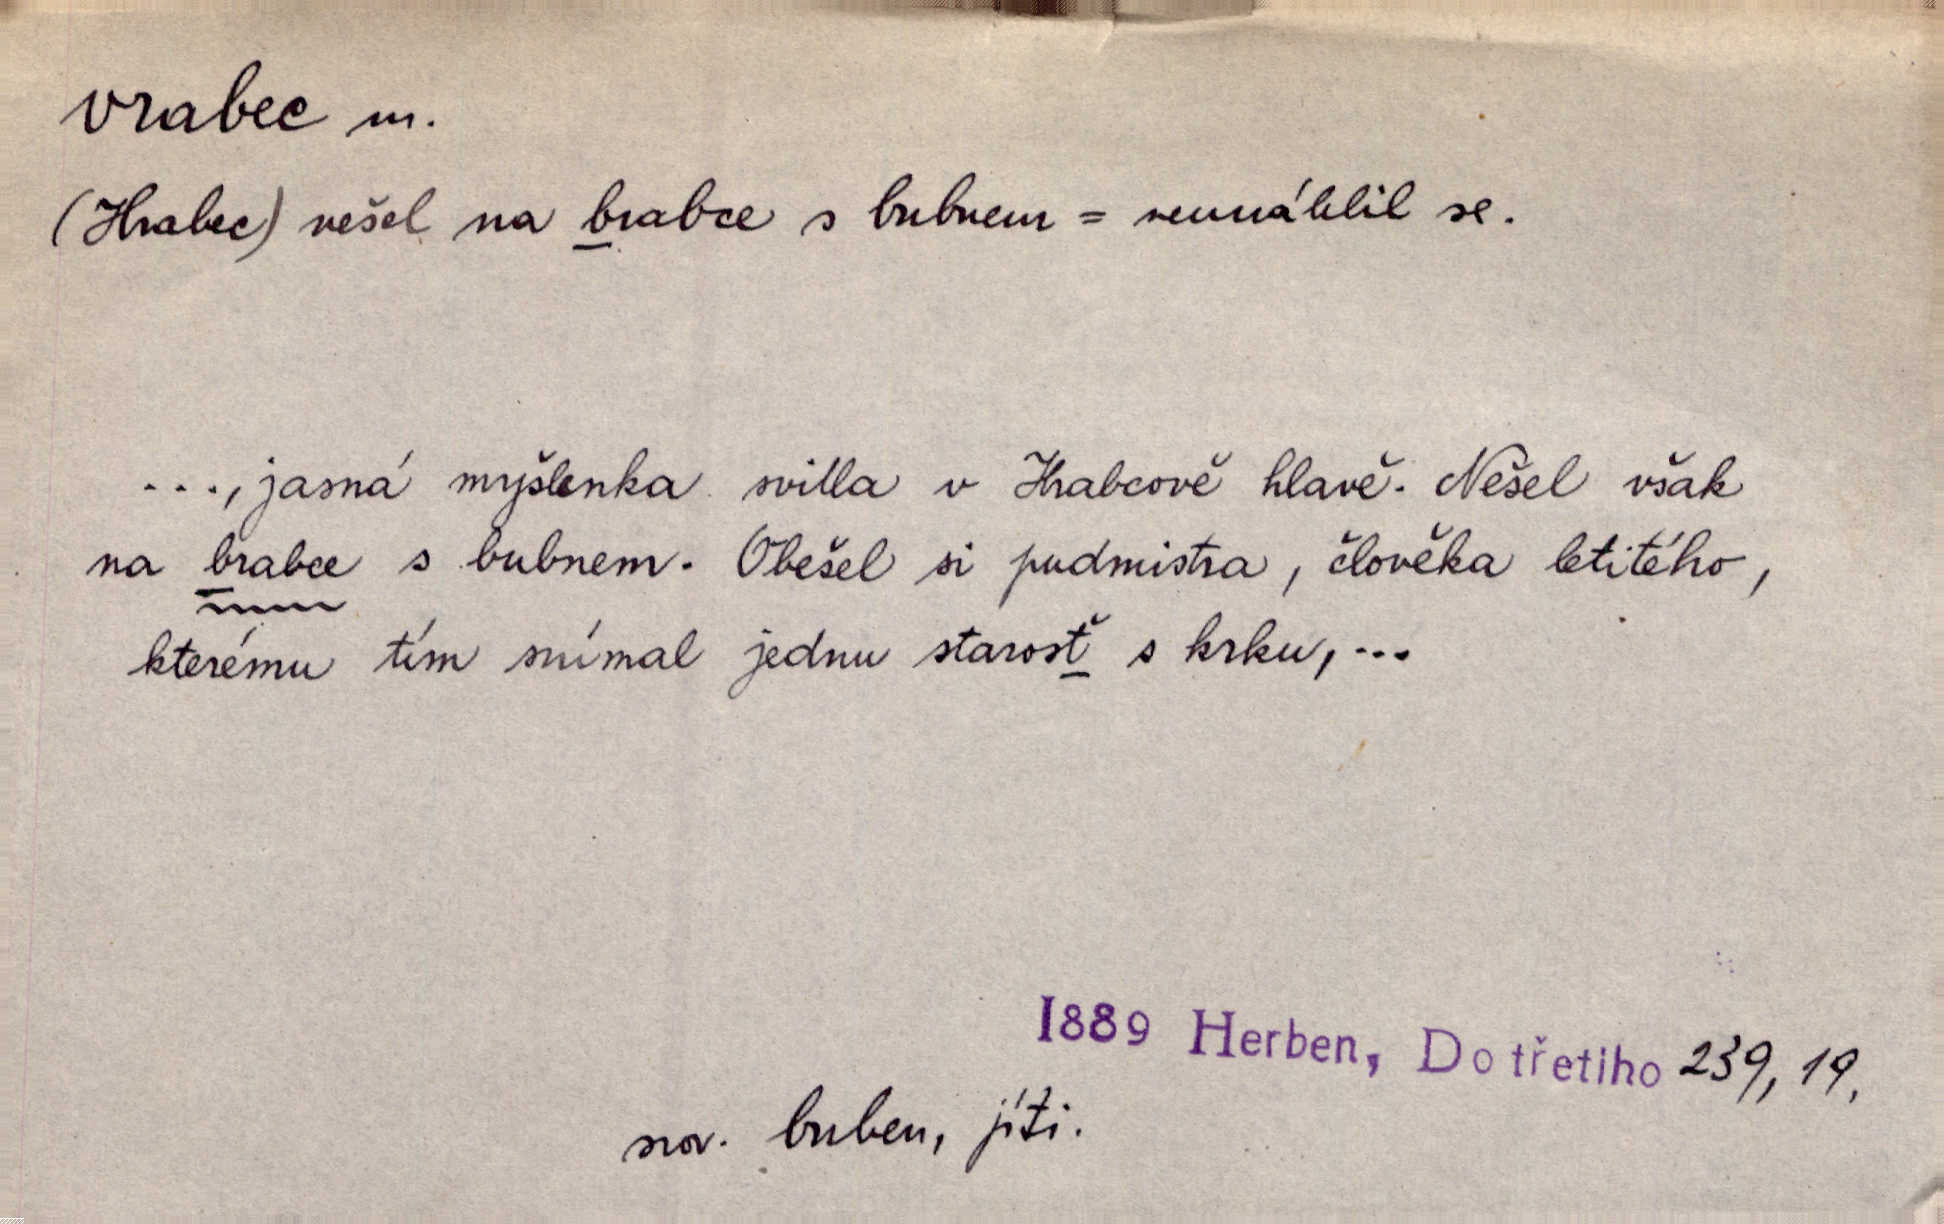 vrabec m.
(Hrabec) nešel na brabce s bubnem = neunáhlil se.
..., jasná myšlenka svitla v Hrabcově hlavě. Nešel však
na brabce s bubnem. Obešel si pudmistra, člověka letitého,
kterému tím snímal jednu starosť s krku, ...
1889 Herben, Do třetího 239, 19.
srov. buben, jíti.